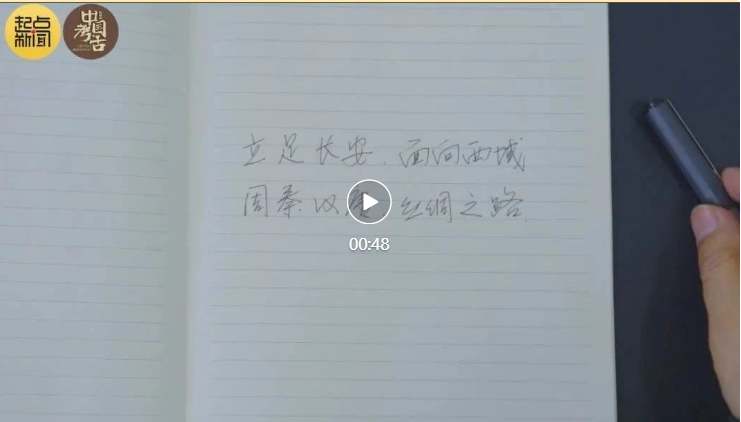 起点
新闻
中国
考古
立足长安.面向西域
周秦汉唐 丝绸之路.
00:48